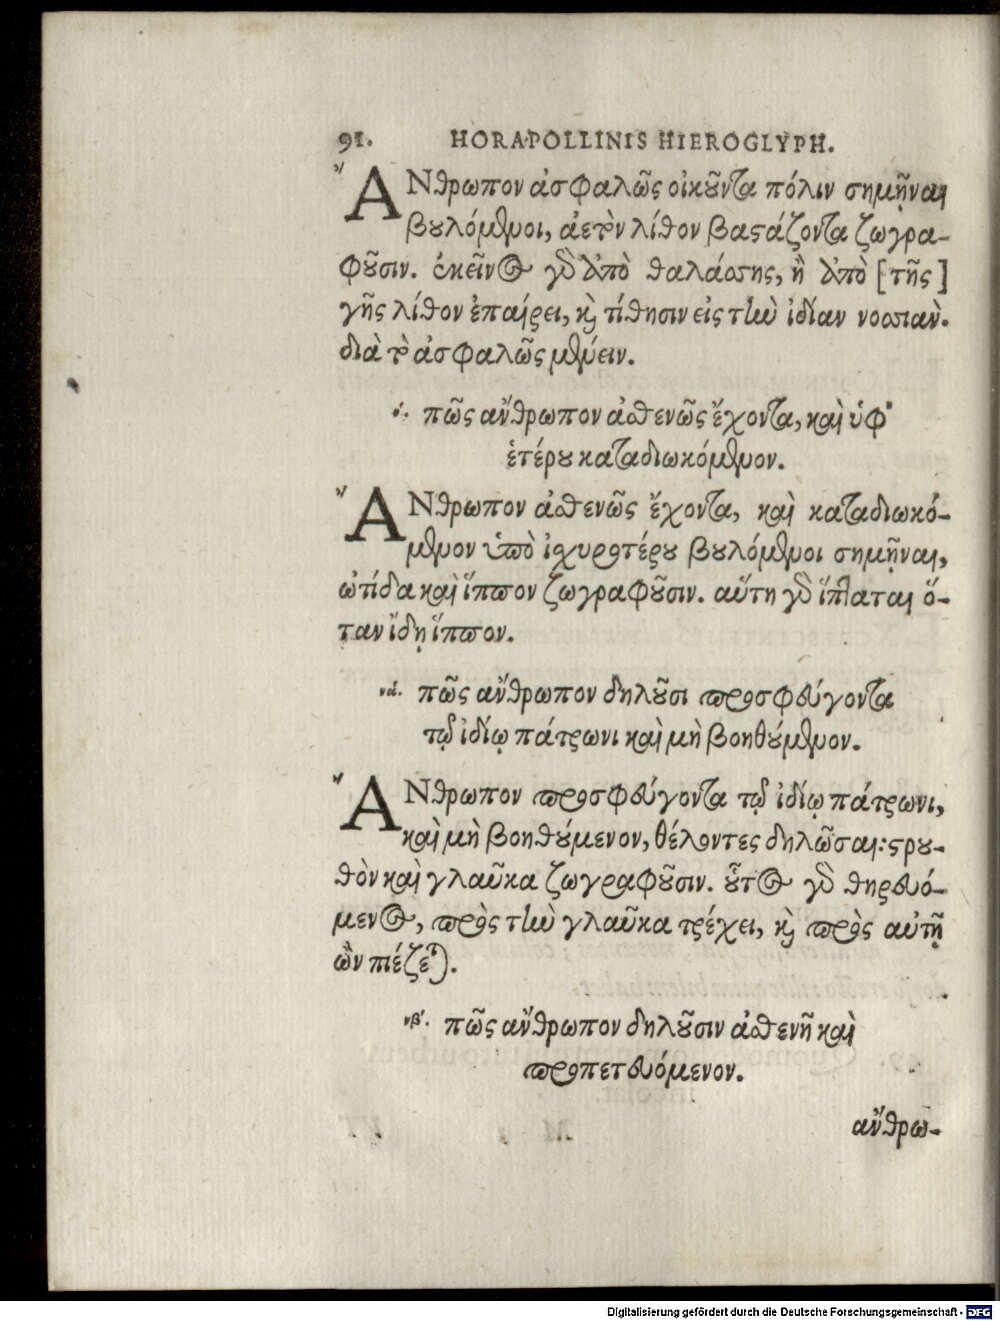 91. HORAPOLLINIS HIEROGLYPH.
ἌΝθρωπον ἀσφαλῶς οἰκοῦντα πόλιν σημῆναι
βουλόμενοι, ἀετὸν λίθον βαστάζοντα ζωγρα-
φοῦσιν. ἐκεῖνος γὰρ ἀπὸ θαλάσσης, ἢ ἀπὸ [τῆς]
γῆς λίθον ἐπαίρει, καὶ τίθησιν εἰς τὴν ἰδίαν νοσσιὰν.
διὰ τὸ ἀσφαλῶς μένειν.
ν. πῶς ἄνθρωπον ἀσθενῶς ἔχοντα, καὶ ὑφ'
ἑτέρου καταδιωκόμενον.
ἌΝθρωπον ἀσθενῶς ἔχοντα, καὶ καταδιωκό-
μενον ὑπὸ ἰσχυροτέρου βουλόμενοι σημῆναι,
ὠτίδα καὶ ἵππον ζωγραφοῦσιν. αὕτη γὰρ ἵπταται ὅ-
ταν ἴδῃ ἵππον.
να. πῶς ἄνθρωπον δηλοῦσι προσφεύγοντα
τῷ ἰδίῳ πάτρωνι καὶ μὴ βοηθούμενον.
ἌΝθρωπον προσφεύγοντα τῷ ἰδίῳ πάτρωνι,
καὶ μὴ βοηθούμενον, θέλοντες δηλῶσαι: στρου-
θὸν καὶ γλαῦκα ζωγραφοῦσιν. οὗτος γὰρ θηρευό-
μενος, πρὸς τὴν γλαῦκα τρέχει, καὶ πρὸς αὐτῇ
ὢν πιέζεται.
νβ'. πῶς ἄνθρωπον δηλοῦσιν ἀσθενῆ καὶ
προπετευόμενον.
ἄνθρω-
Digitalisierung gefördert durch die Deutsche Forschungsgemeinschaft - DFG